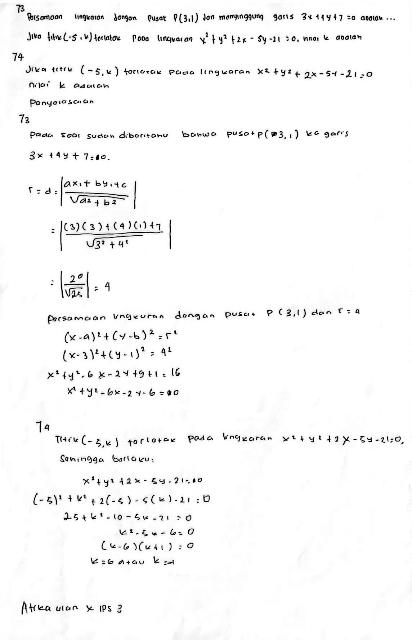 73
Persamaan lingkaran dengan pusat P(3,1) dan menyinggung garis 3x+4y+7=0 adalah ...
Jika titik (-5,k) terletak pada lingkaran x²+y²+2x-5y-21=0, nilai k adalah
74
Jika titik (-5,k) terletak pada lingkaran x²+y²+2x-5y-21=0
nilai k adalah
Penyelesaian
73
Pada soal sudah diberitahu bahwa pusat P(3,1) ke garis
3x+4y+7=0.
r=d=|ax₁+by₁+c / √a²+b²|
=|(3)(3)+(4)(1)+7 / √3²+4²|
=|20/√25|=4
Persamaan lingkaran dengan pusat P(3,1) dan r=4
(x-a)²+(y-b)²=r²
(x-3)²+(y-1)²=4²
x²+y²-6x-2y+9+1=16
x²+y²-6x-2y-6=0
74
Titik (-5,k) terletak pada lingkaran x²+y²+2x-5y-21=0,
Sehingga berlaku:
x²+y²+2x-5y-21=0
(-5)²+k²+2(-5)-5(k)-21=0
25+k²-10-5k-21=0
k²-5k-6=0
(k-6)(k+1)=0
k=6 atau k=-1
Atika ulan X IPS 3